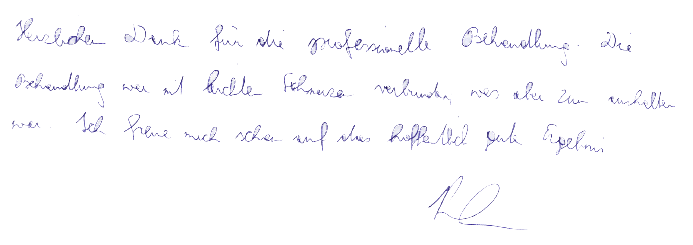 Herzlichen Dank für die professionelle Behandlung. Die
Behandlung war mit leichten Schmerzen verbunden, was aber zum aushalten
war. Ich freue mich schon auf das hoffentlich gute Ergebnis